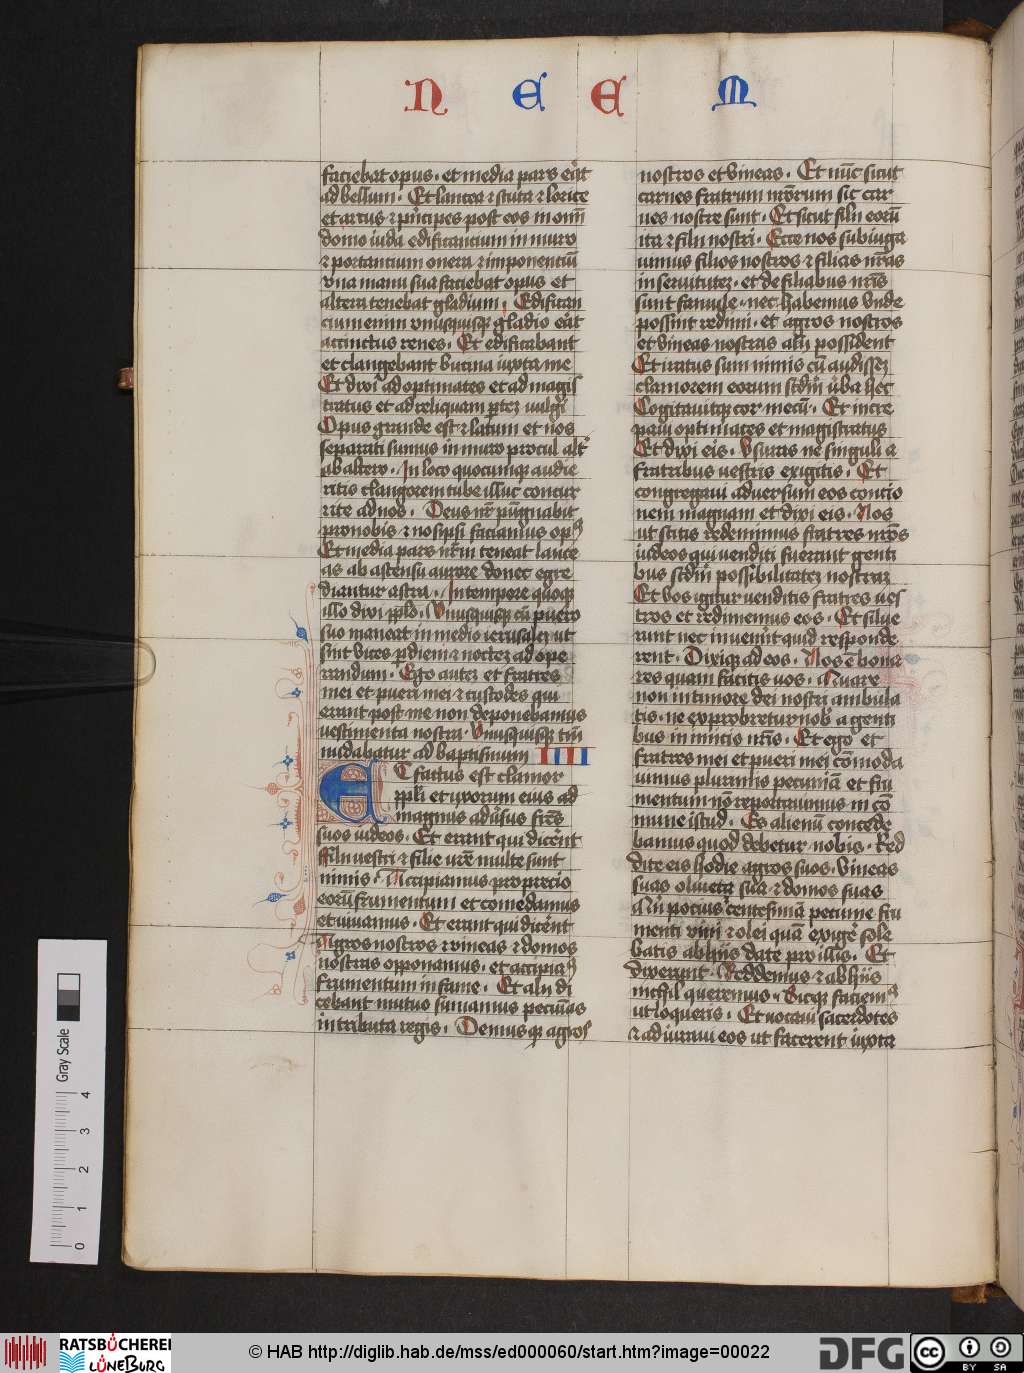 N E E M
faciebat opus · et media pars erat
ad bellum · Et lancea et scuta et lorice
et arcus et principes post eos in omni
domo iuda edificantium in muro
et portantium onera et imponentiu
vna manu sua faciebat opus et
altera tenebat gladium · Edifican
cium enim vnusquisque gladio erat
accinctus renes · Et edificabant
et clangebant bucina iuxta me
Et dixi ad optimates et ad magis
tratus et ad reliquam partem vulgi
Opus grande est et latum et nos
separati sumus in muro procul alter
ab altero · In loco quocumque audie
ritis clangorem tube illuc concur
rite ad nos · Deus noster pugnabit
pro nobis et nos ipsi faciamus opus
Et media pars nostrum teneat lance
as ab ascensu aurore donec egre
diantur astra · In tempore quoque
illo dixi populo · Vnusquisque cum puero
suo maneat in medio ierusalem et
sint vices per diem et noctem ad ope
randum · Ego autem et fratres
mei et pueri mei et custodes qui
erant post me non deponebamus
vestimenta nostra · Vnusquisque tantum
nudabatur ad baptismum IIII
ET factus est clamor
populi et vxorum eius ad
magnus aduersus fratres
suos iudeos · Et erant qui dicerent
Filii vestri et filie vestre multe sunt
nimis · Accipiamus pro precio
eorum frumentum et comedamus
et viuamus · Et erant qui dicerent
Agros nostros et vineas et domos
nostras opponamus · et accipiamus
frumentum in fame · Et alii di
cebant mutuo sumamus pecunias
in tributa regis · Demusque agros
nostros et vineas · Et nunc sicut
carnes fratrum nostrorum sic car
nes nostre sunt · Et sicut filii eorum
ita et filii nostri · Ecce nos subiuga
uimus filios nostros et filias nostras
in seruitutem · et de filiabus nostris
sunt famule · nec habemus vnde
possint redimi · et agros nostros
et vineas nostras alii possident
Et iratus sum nimis cum audissem
clamorem eorum secundum verba hec
Cogitauitque cor mecum · Et incre
paui optimates et magistratus
Et dixi eis · Vsuras ne singuli a
fratribus vestris exigitis · Et
congregaui aduersum eos concio
nem magnam et dixi eis · Nos
ut scitis redemimus fratres nostros
iudeos qui venditi fuerant genti
bus secundum possibilitatem nostram
Et vos igitur venditis fratres ves
tros et redimemus eos · Et silue
runt nec inuenerunt quid responde
rent · Dixique ad eos · Non est bona
res quam facitis vos · Quare
non in timore dei nostri ambula
tis · ne exprobretur nobis a genti
bus inimicis nostris · Et ego et
fratres mei et pueri mei commoda
uimus plurimis pecuniam et fru
mentum non reportauimus in co
mune istud · Es alienum concede
bamus quod debetur nobis · Red
dite eis hodie agros suos · vineas
suas oliueta sua et domos suas
Quin pocius centesimam pecunie fru
menti vini et olei quam exigere sole
batis ab hiis date pro illis · Et
dixerunt · Reddemus et ab hiis
nichil queremus · Sicque faciemus
ut loqueris · Et uocaui sacerdotes
et adiuraui eos ut facerent iuxta
Gray Scale
0 1 2 3 4
RATSBÜCHEREI
LÜNEBURG
© HAB http://diglib.hab.de/mss/ed000060/start.htm?image=00022
DFG
cc BY SA